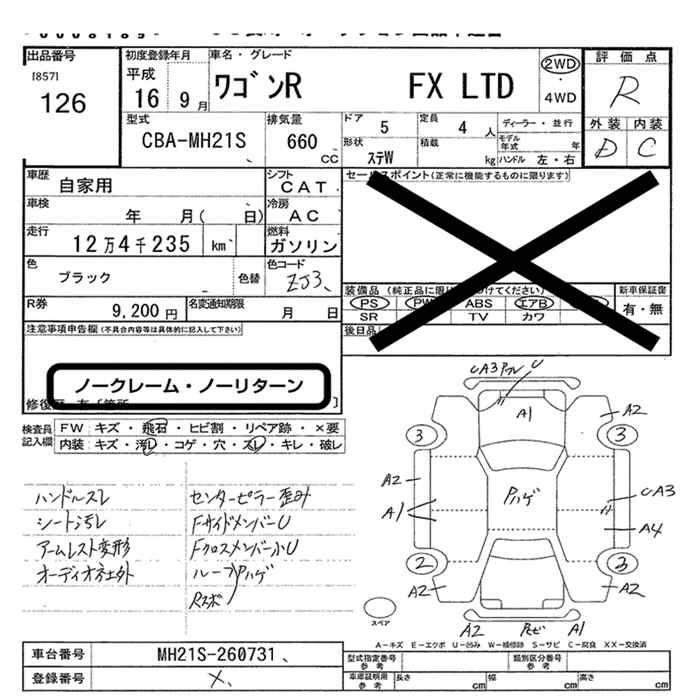 出品番号
[857]
126
初度登録年月
平成
16 9 月
車名・グレード
ワゴンR FX LTD
2WD
・
4WD
評価点
R
外装 内装
D C
型式
CBA-MH21S
排気量
660
CC
ドア
5
定員
4 人
ディーラー・並行
形状
ステW
積載
kg
モデル
年式
年
ハンドル 左・右
車歴
自家用
シフト
CAT
車検
年 月( 日)
冷房
AC
走行
12万4千235 km
燃料
ガソリン
色
ブラック
色替
色コード
ZJ3
R券
9,200 円
名変通知期限
月 日
セールスポイント(正常に機能するものに限ります)
装備品
PS PW ABS エアB
SR TV カワ
後日品
新車保証書
有・無
注意事項申告欄 (不具合内容等は具体的に記入して下さい)
ノークレーム・ノーリターン
検査員
記入欄
FW : キズ・飛石・ヒビ割・リペア跡・×要
内装 : キズ・汚レ・コゲ・穴・スレ・キレ・破レ
ハンドルスレ
シート汚レ
アームレスト変形
オーディオ社外
センターピラー歪み
FサイドメンバーU
Fクロスメンバー小U
ルーフPハゲ
CA3 U
A1
A2
3
3
A2
A1
Pハゲ
CA3
A4
2
3
A2
A2
スペア
A2
A1
A-キズ E-エクボ U-凹み W-補修跡 S-サビ C-腐食 XX-交換済
車台番号
MH21S-260731
登録番号
×
型式指定番号
参考
類別区分番号
参考
車庫証明用
参考
長さ cm
幅 cm
高さ cm